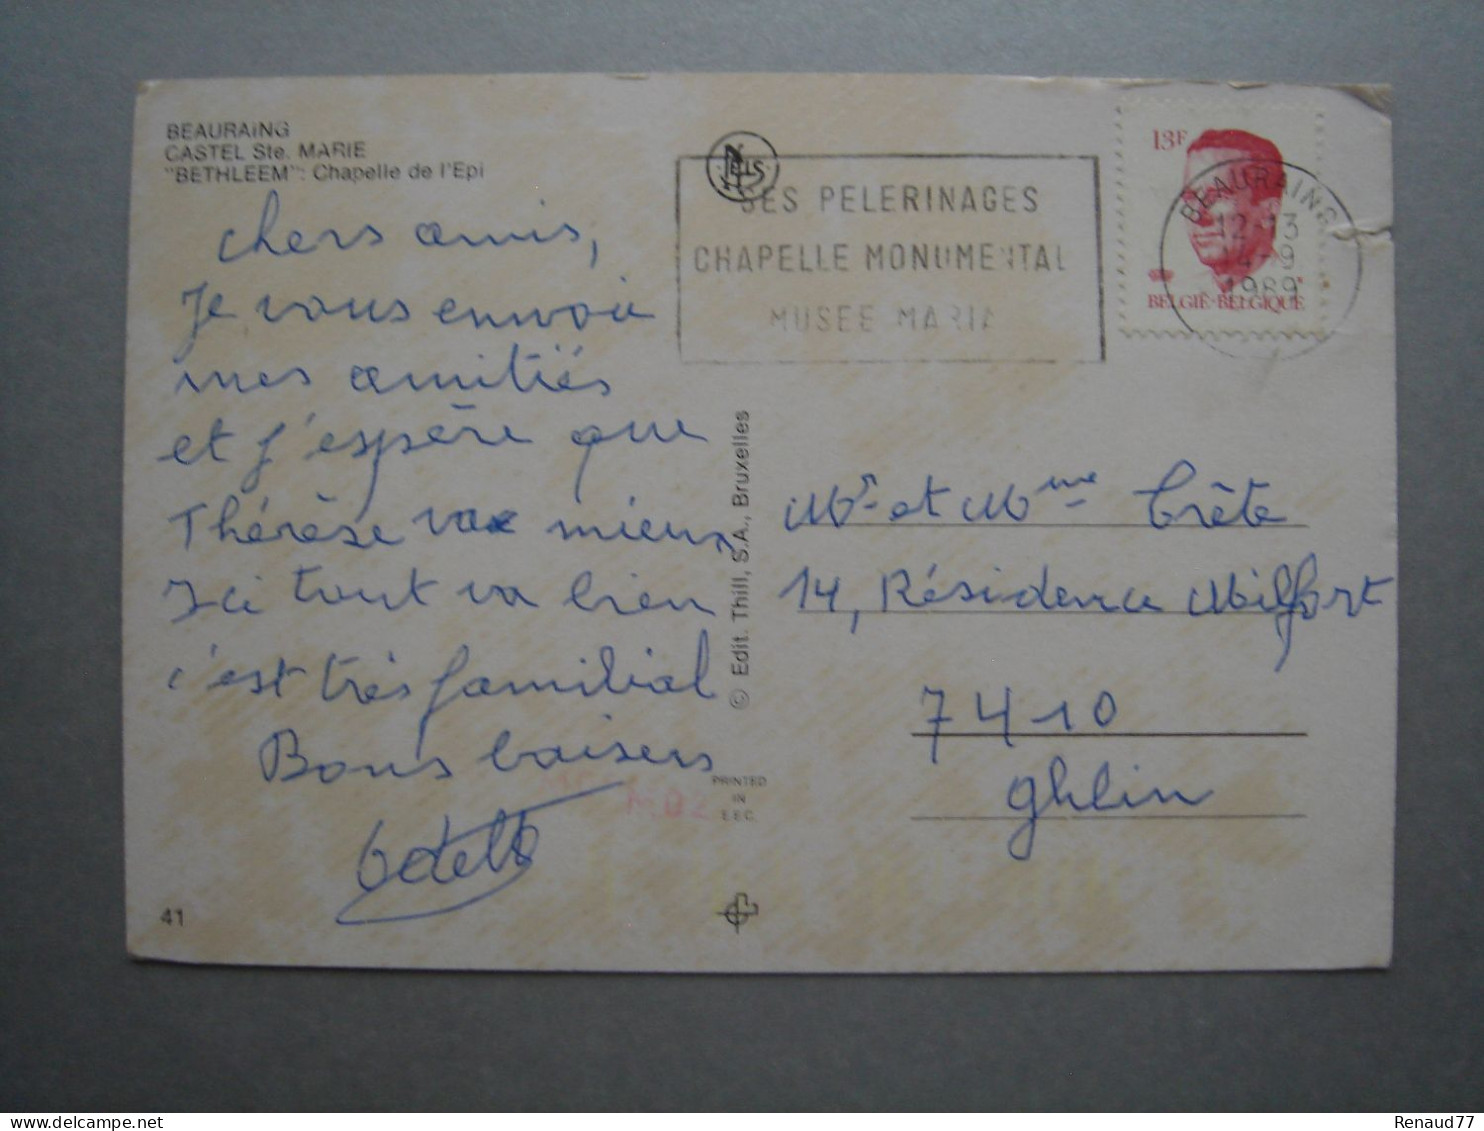 BEAURAING
CASTEL Ste. MARIE
"BETHLEEM": Chapelle de l'Epi
chers amis,
Je vous envoie
mes amitiés
et j'espère que
Thérèse va mieux
Ici tout va bien
c'est très familial
Bons baisers
41
NELS
SES PELERINAGES
CHAPELLE MONUMENTAL
MUSEE MARIA
13F
BELGIË·BELGIQUE
BEAURAING
12-13
14-9
1989
© Edit. Thill, S.A., Bruxelles
PRINTED
IN
E.E.C.
Mr et Mme Crète
14, Résidence Milfort
7410
Ghlin
Renaud77